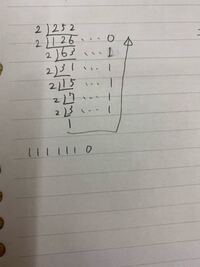 2)252
2)126 ... 0
2)63 ... 1
2)31 ... 1
2)15 ... 1
2)7 ... 1
2)3 ... 1
1
1111110